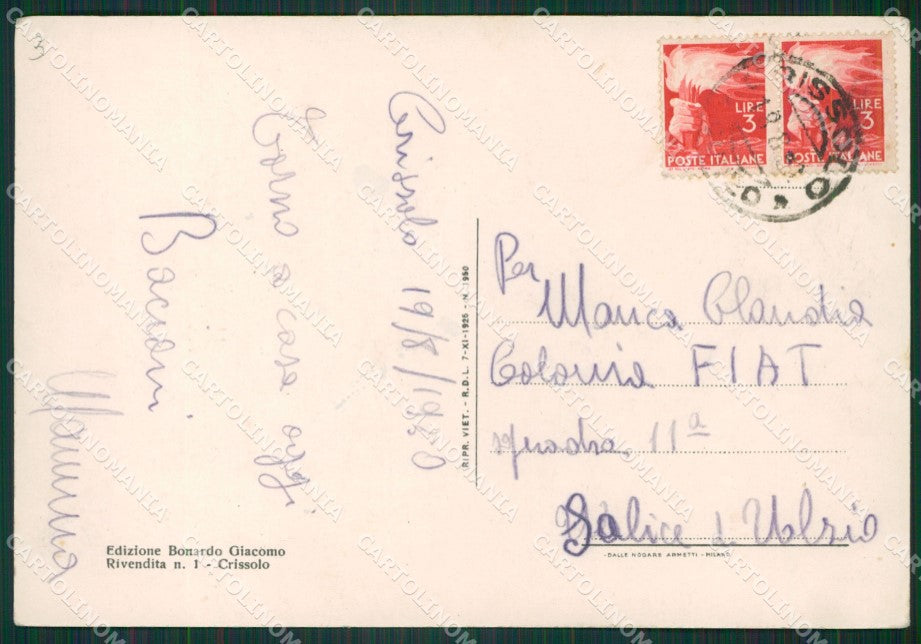 Crissolo 19/8/1950
Torno a casa oggi
Bacioni
Mamma
Edizione Bonardo Giacomo
Rivendita n. 1 - Crissolo
RIPR. VIET. - R.D.L. 7-XI-1926 - N. 1950
LIRE
3
POSTE ITALIANE
LIRE
3
POSTE ITALIANE
CRISSOLO
Per
Manca Claudia
Colonia FIAT
squadra 11ª
Salice d'Ulzio
DALLE NOGARE ARMETTI - MILANO
CARTOLINOMANIA